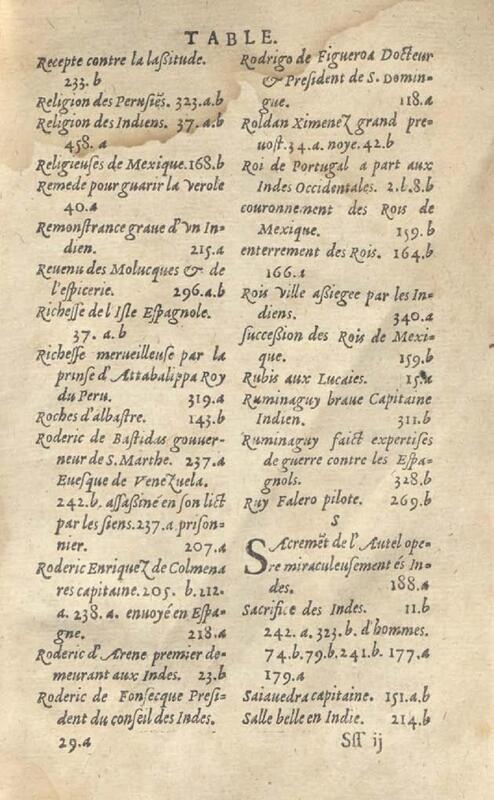 TABLE.
Recepte contre la laßitude.
233.b
Religion des Perusiẽs. 323.a.b
Religion des Indiens. 37.a.b
458.a
Religieuses de Mexique.168.b
Remede pour guarir la verole
40.a
Remonstrance graue d'vn In-
dien. 215.a
Reuenu des Molucques & de
l'espicerie. 296.a.b
Richesse de l'Isle Espagnole.
37.a.b
Richesse merueilleuse par la
prinse d'Attabalippa Roy
du Peru. 319.a
Roches d'albastre. 143.b
Roderic de Bastidas gouuer-
neur de S. Marthe. 237.a
Euesque de Venezuela.
242.b. assaßiné en son lict
par les siens.237.a.prison-
nier. 207.a
Roderic Enriquez de Colmena
res capitaine. 205. b. 212.
a. 238. a. enuoyé en Espa-
gne. 218.a
Roderic d'Arene premier de-
meurant aux Indes. 23.b
Roderic de Fonsecque Presi-
dent du conseil des Indes.
29.a
Rodrigo de Figueroa Docteur
& President de S. Domin-
gue. 118.a
Roldan Ximenez grand pre-
uost.34.a. noye.42.b
Roi de Portugal a part aux
Indes Occidentales. 2.b.8.b
couronnement des Rois de
Mexique. 159.b
enterrement des Rois. 164.b
166.a
Rois ville aßiegee par les In-
diens. 340.a
succeßion des Rois de Mexi-
que. 159.b
Rubis aux Lucaies. 15.a
Ruminaguy braue Capitaine
Indien. 311.b
Ruminaguy faict expertises
de guerre contre les Espa-
gnols. 328.b
Ruy Falero pilote. 269.b
S
SAcremẽt de l'Autel ope-
re miraculeusement és In-
des. 188.a
Sacrifice des Indes. 11.b
242.a.323.b. d'hommes.
74.b.79.b.241.b. 177.a
179.a
Saiauedra capitaine. 151.a.b
Salle belle en Indie. 214.b
Sſſ ij